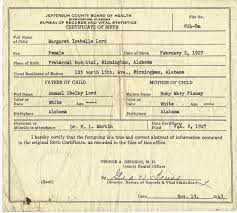 JEFFERSON COUNTY BOARD OF HEALTH
BIRMINGHAM, ALABAMA
BUREAU OF RECORDS AND VITAL STATISTICS
CERTIFICATE OF BIRTH
File No.
Full Name of Child Margaret Isabelle Lord
Sex Female Date of Birth February 2, 1927
Place of Birth Fraternal Hospital, Birmingham, Alabama
Usual Residence of Mother 115 North 15th Ave., Birmingham, Alabama
FATHER OF CHILD MOTHER OF CHILD
Full Name Samuel Shelby Lord Full Maiden Name Ruby Mary Finney
Color or Race White Age Color or Race White Age
State or Country of Birth Alabama State or Country of Birth Alabama
Attendant at Birth Dr. H. L. Martin Date Filed Feb. 8, 1927
I hereby certify that the foregoing is a true and correct abstract of information contained
in the original Birth Certificate, as recorded in the files of this office.
GEORGE A. DENISON, M. D.
County Health Officer
By
Director, Bureau of Records & Vital Statistics
Date Nov.